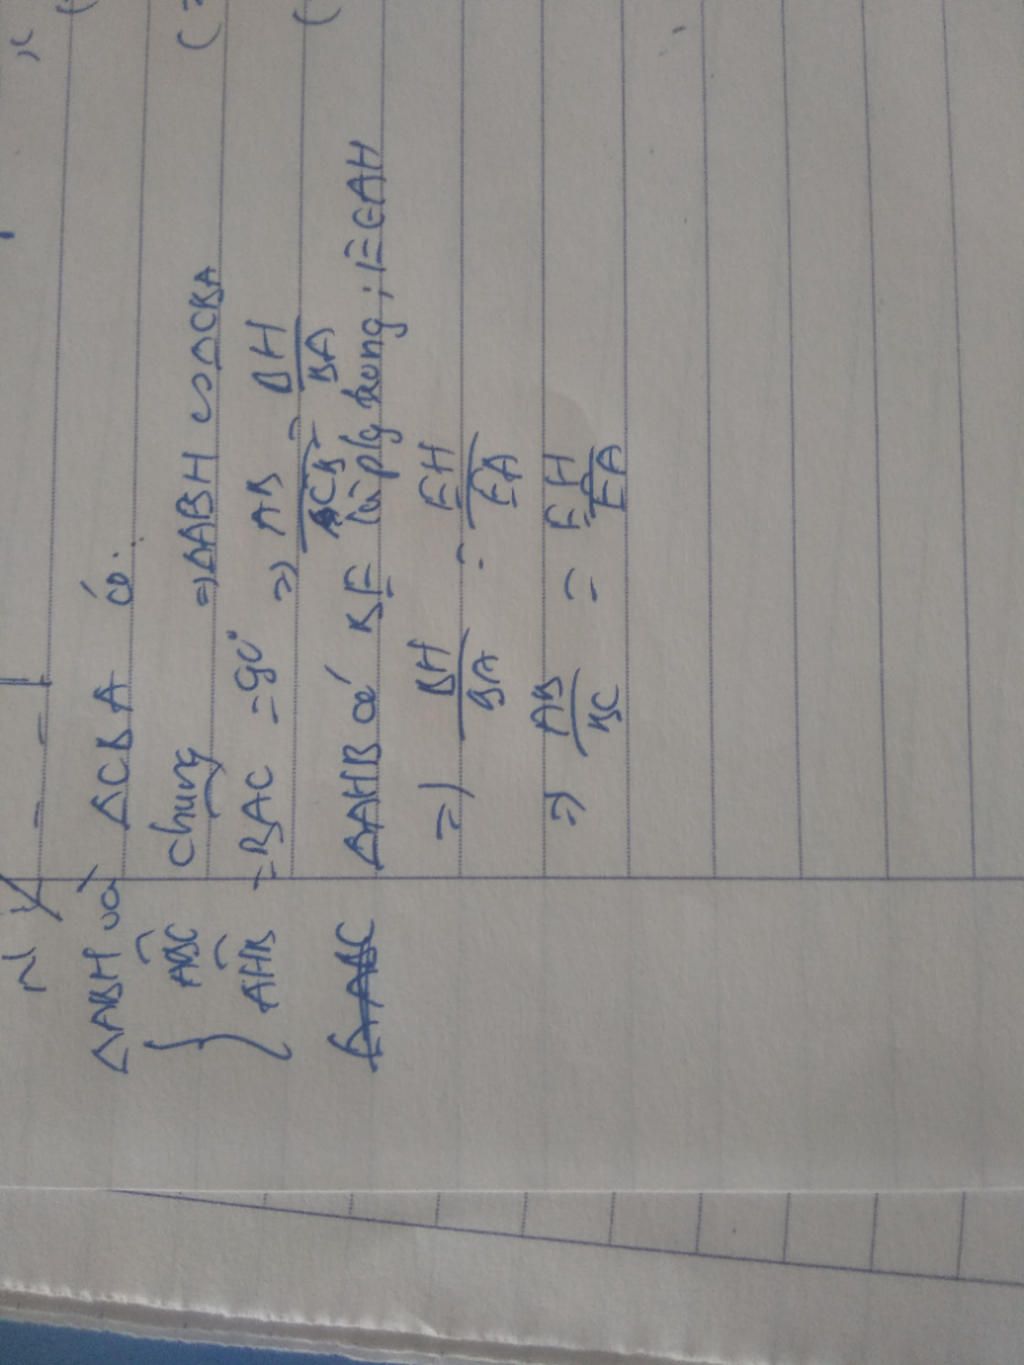 ΔABH và ΔCBA có:
{ ABC chung
AHB = BAC = 90° => ΔABH ∽ ΔCBA
=> AB/CB = BH/BA
ΔAHB có BE là p/g trong; E∈AH
=> BH/BA = EH/EA
=> AB/BC = EH/EA